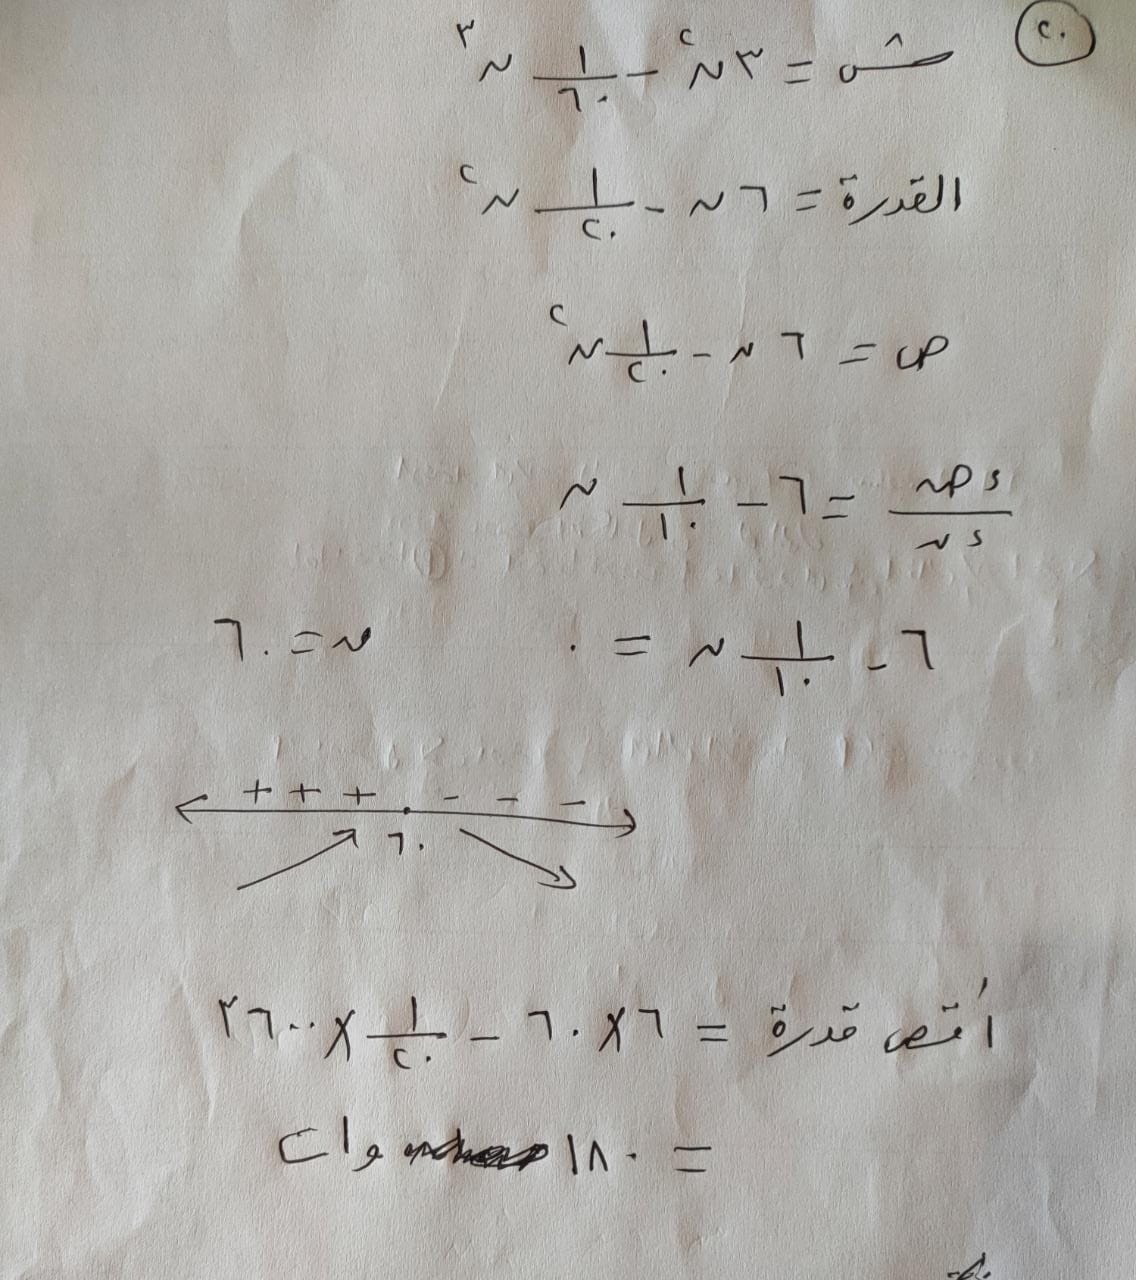 ٢٠
شہ = ٣ن٢ - ١/٦٠ ن٣
القدرة = ٦ن - ١/٢٠ ن٢
ص = ٦ن - ١/٢٠ ن٢
ءص/ءن = ٦ - ١/١٠ ن
٦ - ١/١٠ ن = ٠ ن = ٦٠
+ + + - - -
٦٠
أقصى قدرة = ٦ × ٦٠ - ١/٢٠ × ٣٦٠٠
= ١٨٠ وات